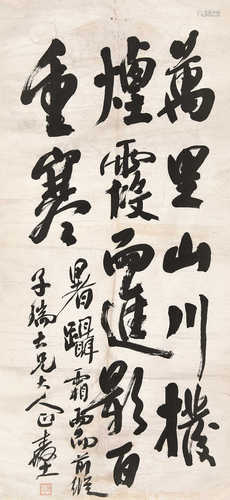 萬里山川撥
煙霞而進影百
重寒
暑躡霜雨而前縱
子瑞大兄大人正